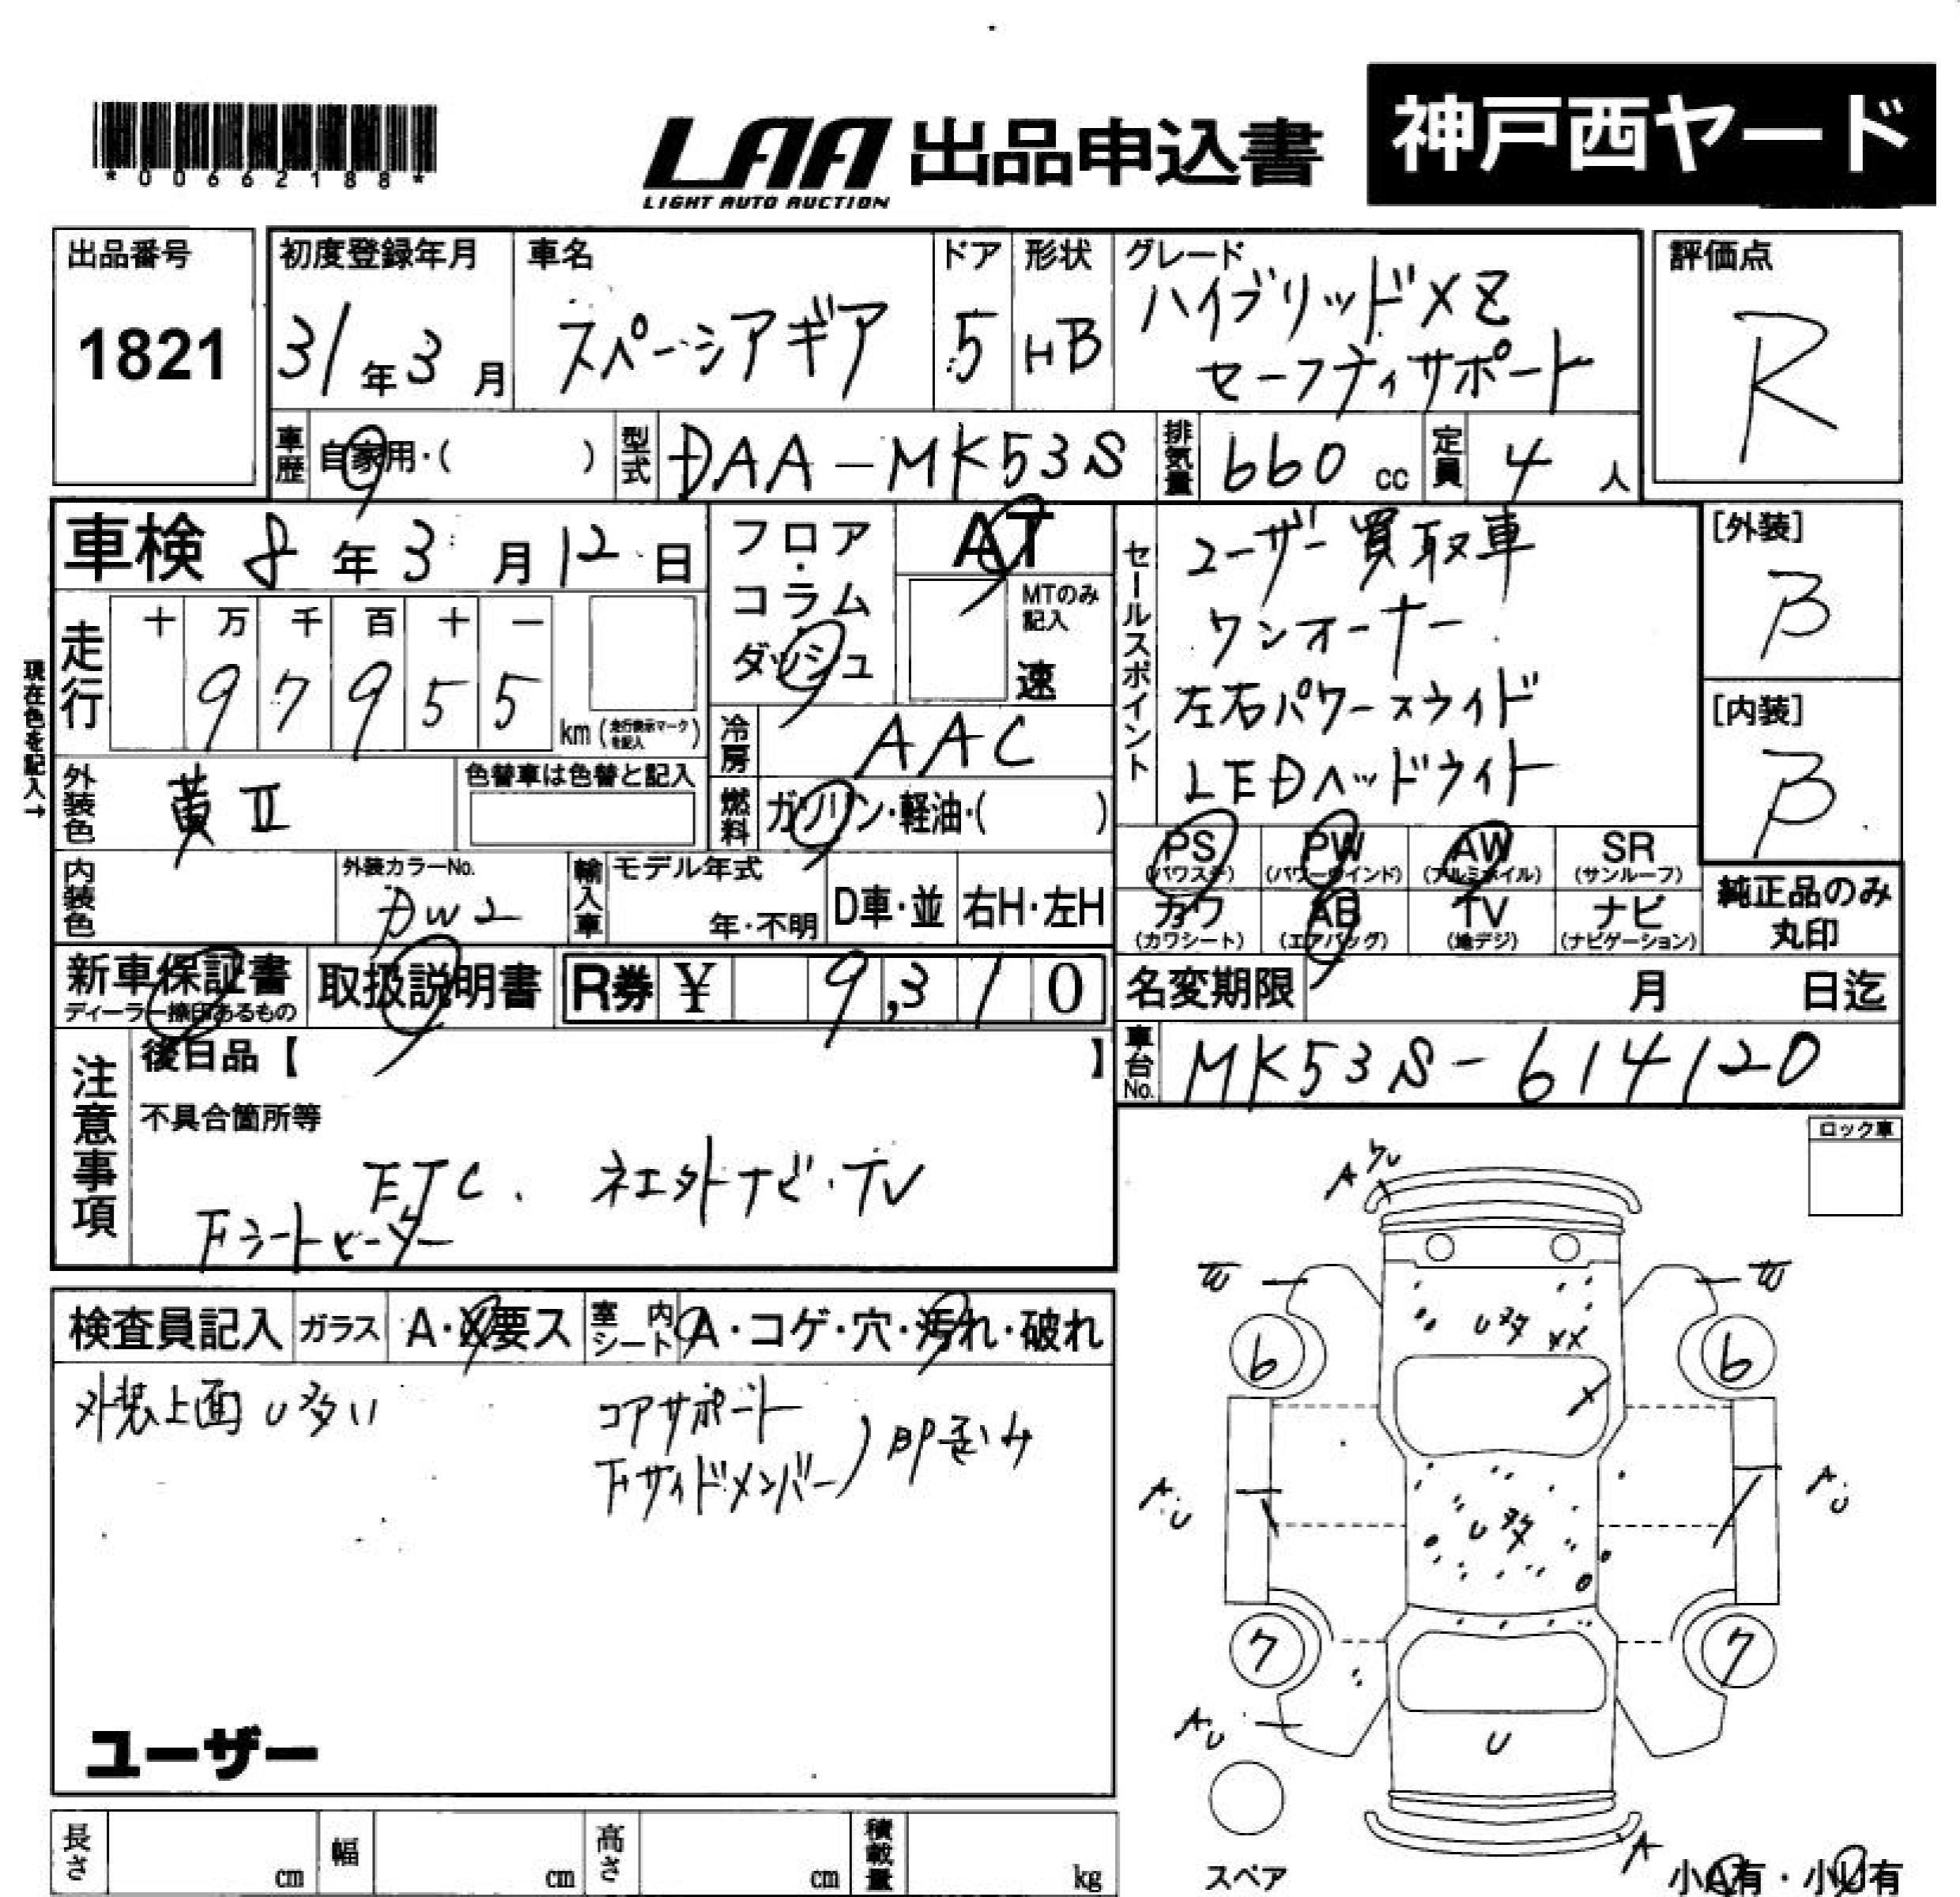 *00662188*
LAA 出品申込書
LIGHT AUTO AUCTION
神戸西ヤード
出品番号
1821
初度登録年月
31年3月
車名
スペーシアギア
ドア
5
形状
HB
グレード
ハイブリッドXZ
セーフティサポート
評価点
R
車歴
自家用・( )
型式
DAA-MK53S
排気量
660 cc
定員
4 人
車検 8年3月12日
走行
十 万 千 百 十 一
9 7 9 5 5
km (走行表示マークを記入)
現在色を記入→
フロア・コラム
ダッシュ
AT
MTのみ記入
速
冷房
AAC
燃料
ガソリン・軽油・( )
外装色
黄II
色替車は色替と記入
内装色
外装カラーNo.
DW2
輸入車
モデル年式
年・不明
D車・並
右H・左H
セールスポイント
ユーザー買取車
ワンオーナー
左右パワースライド
LEDヘッドライト
[外装]
B
[内装]
B
PS
(パワステ)
PW
(パワーウインド)
AW
(アルミホイル)
SR
(サンルーフ)
カワ
(カワシート)
AB
(エアバッグ)
TV
(地デジ)
ナビ
(ナビゲーション)
純正品のみ
丸印
新車保証書
ディーラー捺印あるもの
取扱説明書
R券 ¥ 9,310
名変期限 月 日迄
車台No.
MK53S-614120
注意事項
後日品【 】
不具合箇所等
ETC. 社外ナビ・TV
Fシートヒーター
ロック車
検査員記入
ガラス
A・X要ス
室内シート
A・コゲ・穴・汚れ・破れ
外装上面U多い
コアサポート
Fサイドメンバー
即歪み
ユーザー
A
U多
XX
6
6
X
A.U
A.U
U多
7
7
AU
U
A
スペア
小A有・小U有
長さ cm
幅 cm
高さ cm
積載量 kg